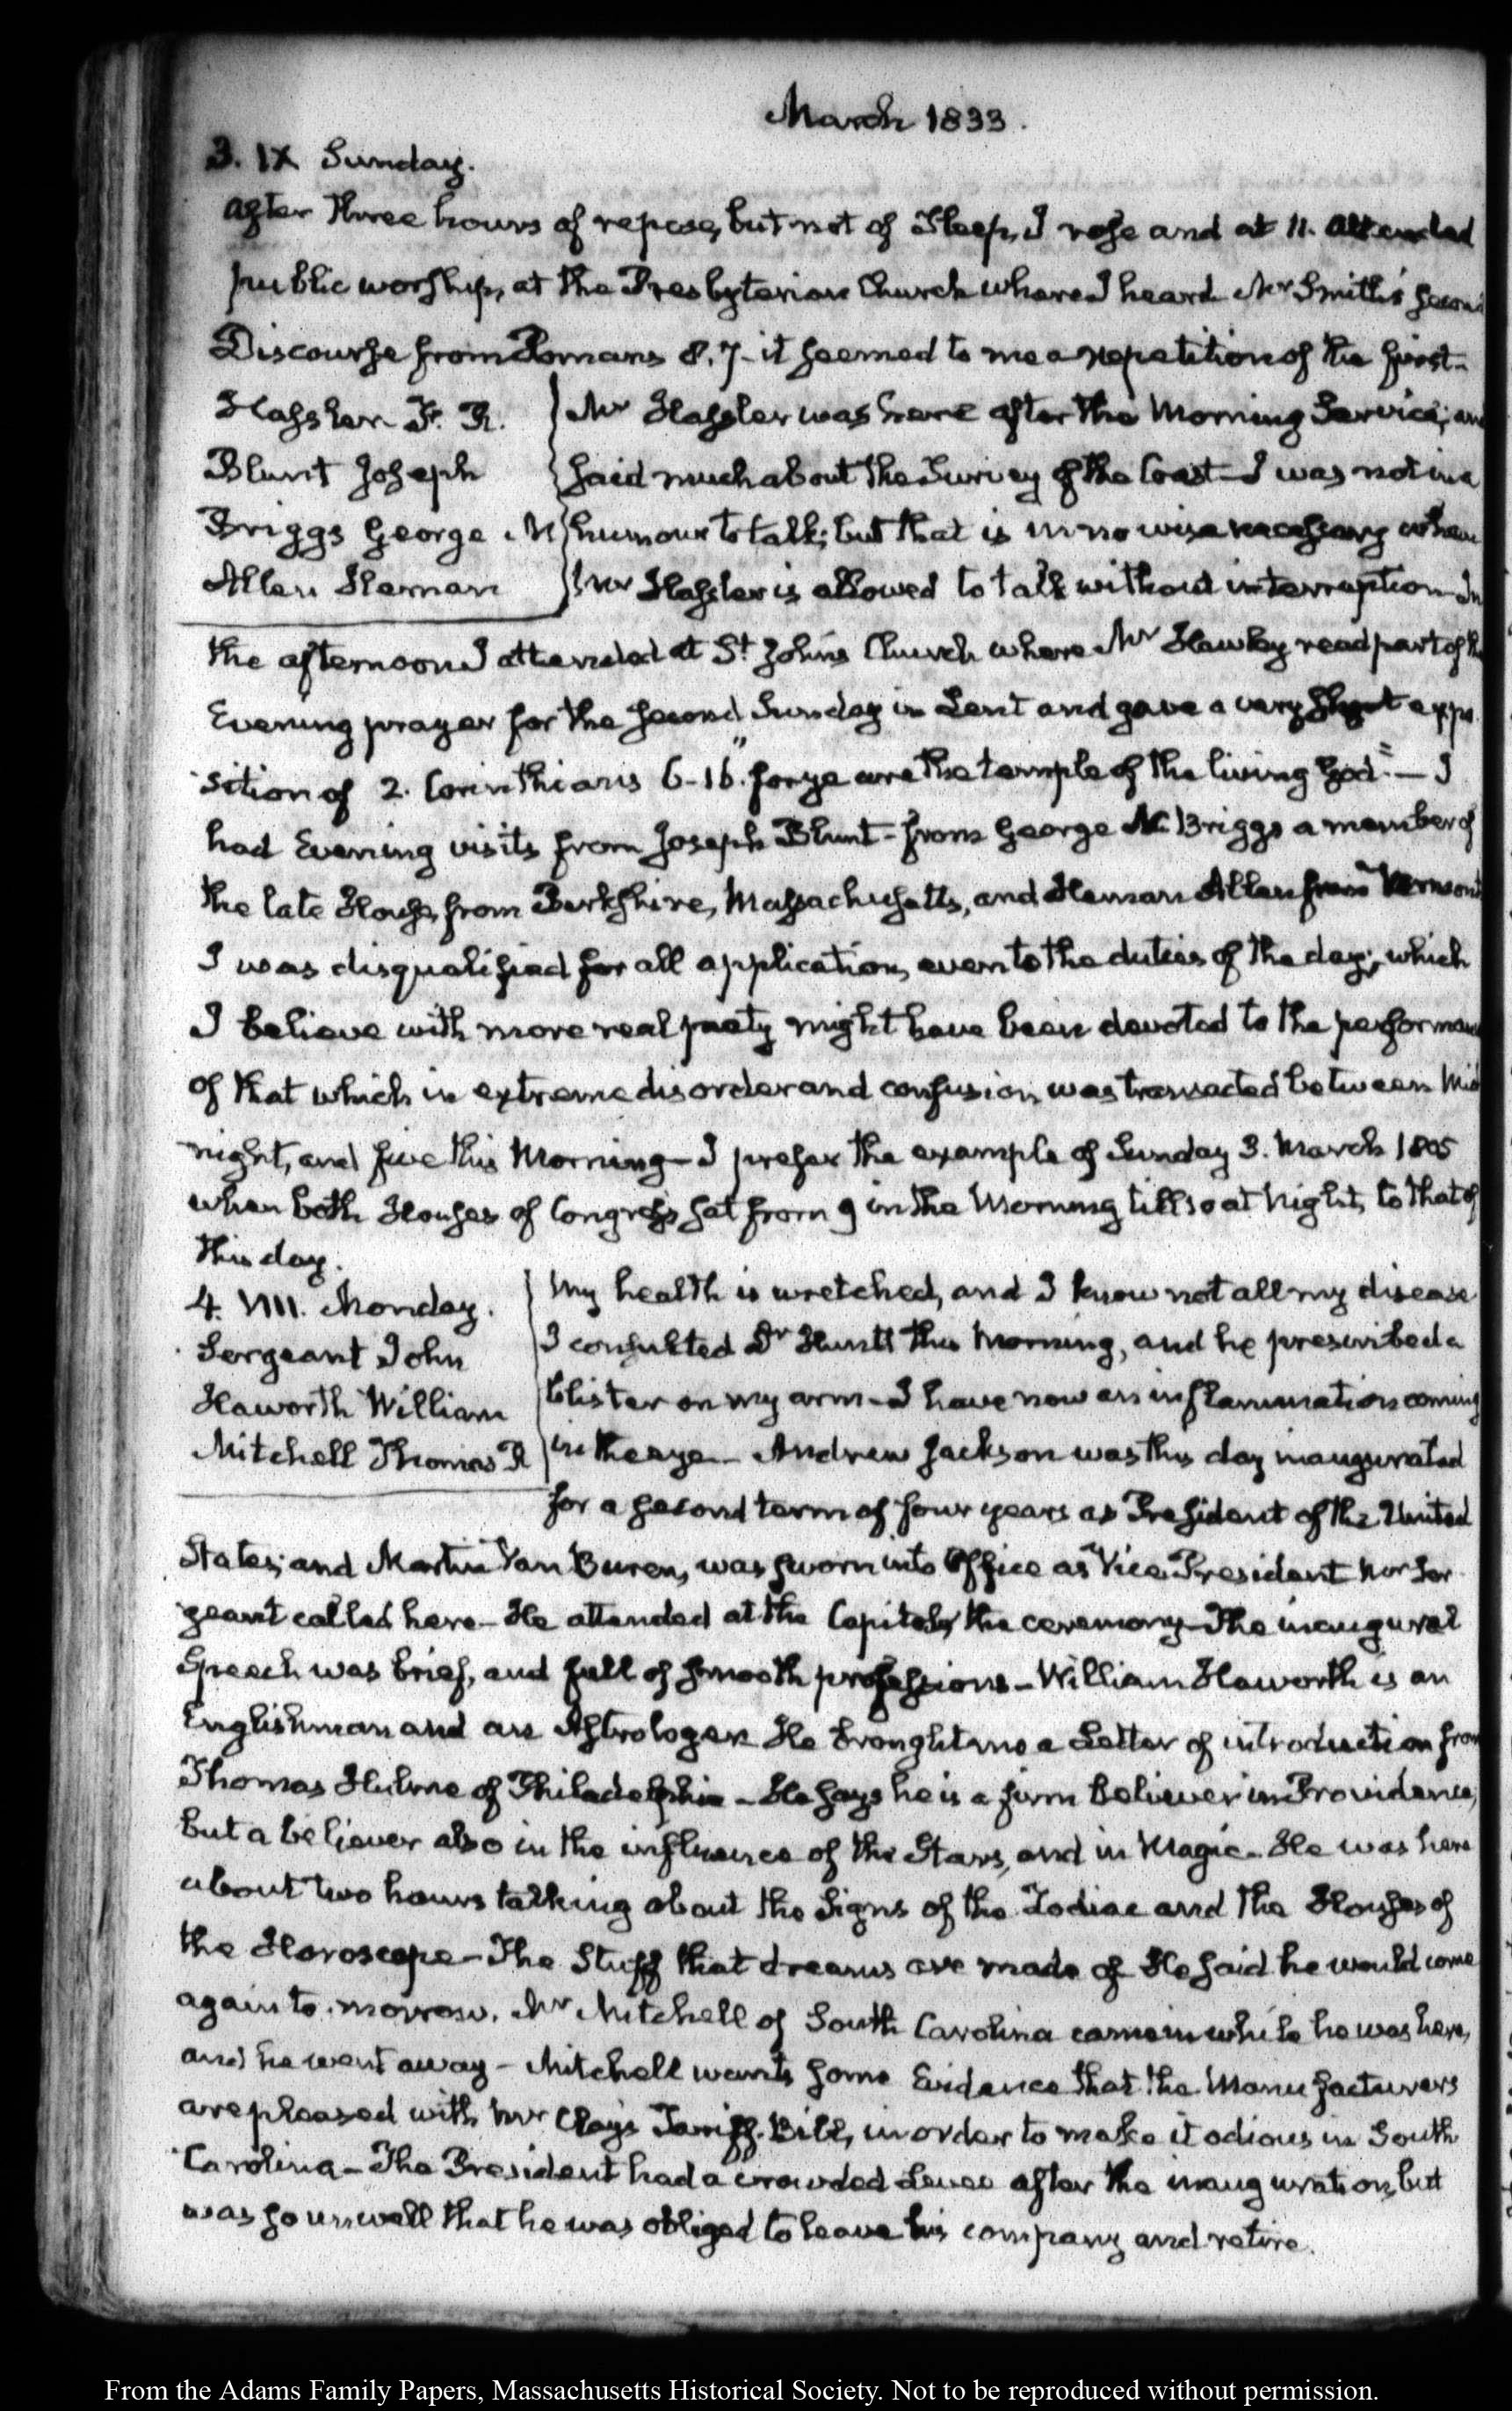 March 1833.
3. IX Sunday.
After three hours of repose, but not of Sleep, I rose and at 11. attended
public worship, at the Presbyterian Church where I heard Mr Smith's second
Discourse from Romans 8. 7- it seemed to me a repetition of the first-
Hassler F. R.
Blunt Joseph
Briggs George N
Allen Heman
Mr Hassler was here after the Morning Service; and
said much about the Survey of the Coast- I was not in a
humour to talk; but that is in no wise necessary when
Mr Hassler is allowed to talk without interruption- In
the afternoon I attended at St. John's Church where Mr Hawley read part of the
Evening prayer for the second Sunday in Lent and gave a very short expo
sition of 2. Corinthians 6-16. "for ye are the temple of the living God"- I
had Evening visits from Joseph Blunt- from George N. Briggs a member of
the late House, from Berkshire, Massachusetts, and Heman Allen from Vermont
I was disqualified for all application, even to the duties of the day; which
I believe with more real piety might have been devoted to the performance
of that which in extreme disorder and confusion was transacted between Mid
night, and five this Morning- I prefer the example of Sunday 3. March 1805
when both Houses of Congress sat from 9 in the Morning till 10 at Night, to that of
this day.
4. VIII. Monday.
Sergeant John
Haworth William
Mitchell Thomas R
My health is wretched, and I know not all my disease
I consulted Dr Huntt this Morning, and he prescribed a
blister on my arm- I have now an inflammation coming
in the eye- Andrew Jackson was this day inaugurated
for a second term of four years as President of the United
States; and Martin Van Buren, was sworn into Office as Vice-President Mr Ser
geant called here- He attended at the Capitol, the ceremony- The inaugural
Speech was brief, and full of smooth professions- William Haworth is an
Englishman and an Astrologer. He brought me a Letter of introduction from
Thomas Hulme of Philadelphia- He says he is a firm believer in Providence,
but a believer also in the influence of the Stars, and in Magic- He was here
about two hours talking about the Signs of the Zodiac and the Houses of
the Horoscope- The Stuff that dreams are made of He said he would come
again to-morrow. Mr Mitchell of South Carolina came in while he was here,
and he went away- Mitchell wants some Evidence that the Manufacturers
are pleased with Mr Clay's Tariff-Bill, in order to make it odious in South
Carolina- The President had a crowded Levee after the inauguration, but
was so unwell that he was obliged to leave his company and retire.
From the Adams Family Papers, Massachusetts Historical Society. Not to be reproduced without permission.